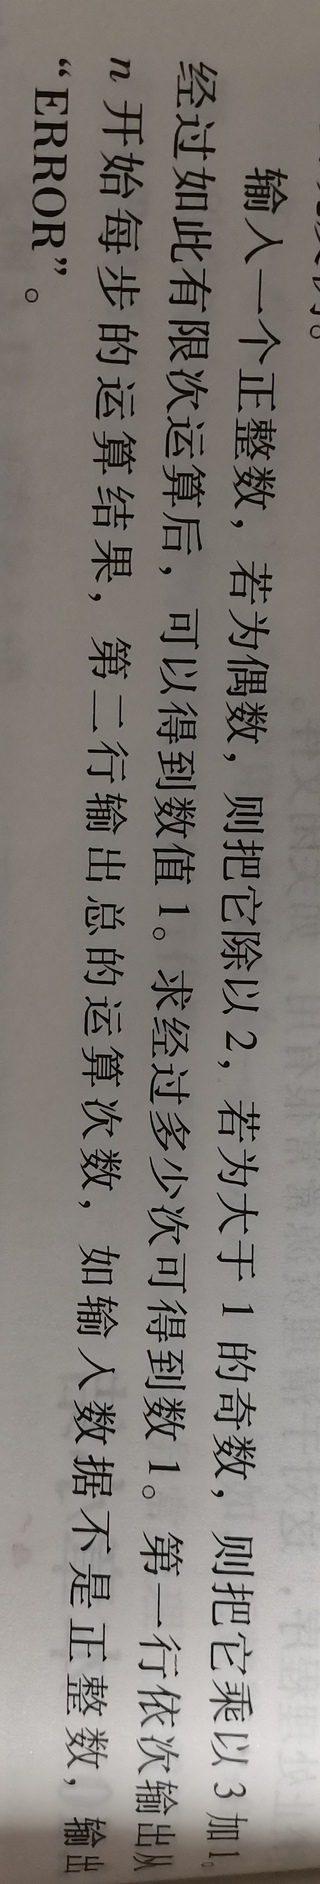 输入一个正整数，若为偶数，则把它除以2，若为大于1的奇数，则把它乘以3加1。
经过如此有限次运算后，可以得到数值1。求经过多少次可得到数1。第一行依次输出从
n开始每步的运算结果，第二行输出总的运算次数，如输入数据不是正整数，输出
“ERROR”。